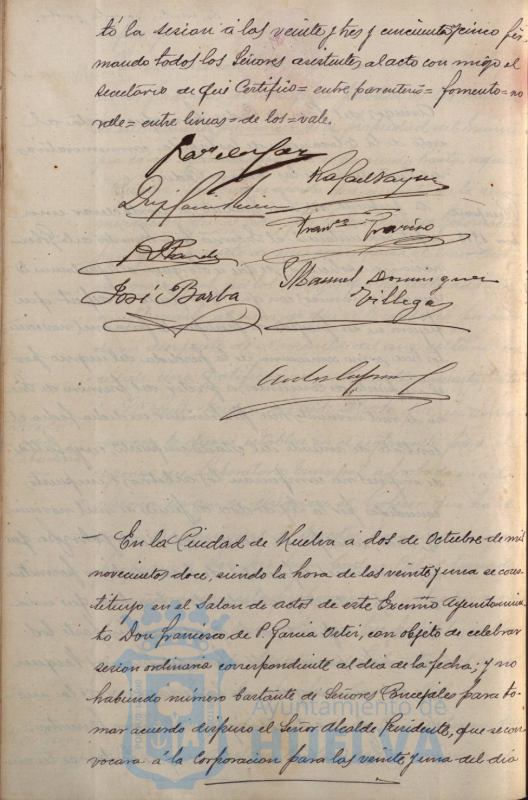 tó la sesion á las veinte y tres y cincuenta y cinco fir-
mando todos los Señores asistentes al acto con migo el
secretario de que Certifico = entre parentesis = fomento = no
vale = entre lineas = de los = vale.
Rafael Vazquez
Fran.co
José Barba
Manuel Dominguez
Villegas
— En la Ciudad de Huelva á dos de Octubre de mil
novecientos doce, siendo la hora de las veinte y una se cons-
tituyó en el Salon de actos de este Excmo Ayuntamien-
to Don Francisco de P. Garcia Ortiz, con objeto de celebrar
sesion ordinaria correspondiente al dia de la fecha; y no
habiendo número bastante de Señores Concejales para to-
mar acuerdo dispuso el Señor Alcalde Presidente, que se con-
vocara á la Corporacion para las veinte y una del dia
Ayuntamiento de
HUELVA